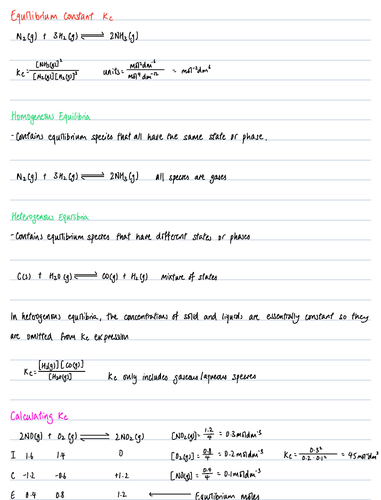 Equilibrium constant Kc
N₂(g) + 3H₂(g) ⇌ 2NH₃(g)
Kc = [NH₃(g)]² / [N₂(g)][H₂(g)]³ units = mol² dm⁻⁶ / mol⁴ dm⁻¹² = mol⁻² dm⁶
Homogenous Equilibria
- Contains equilibrium species that all have the same state or phase.
N₂(g) + 3H₂(g) ⇌ 2NH₃(g) all species are gases
Heterogenous Equilibria
- Contains equilibrium species that have different states or phases
C(s) + H₂O(g) ⇌ CO(g) + H₂(g) mixture of states
In heterogenous equilibria, the concentrations of solid and liquids are essentially constant so they
are omitted from Kc expression
Kc = [H₂(g)][CO(g)] / [H₂O(g)] Kc only includes gaseous/aqueous species
Calculating Kc
2NO(g) + O₂(g) ⇌ 2NO₂(g) [NO₂(g)] = 1.2/4 = 0.3 mol dm⁻³
I 1.6 1.4 0 [O₂(g)] = 0.8/4 = 0.2 mol dm⁻³ Kc = 0.3² / 0.2·0.1² = 45 mol⁻¹ dm³
C -1.2 -0.6 +1.2 [NO(g)] = 0.4/4 = 0.1 mol dm⁻³
E 0.4 0.8 1.2 ← Equilibrium moles